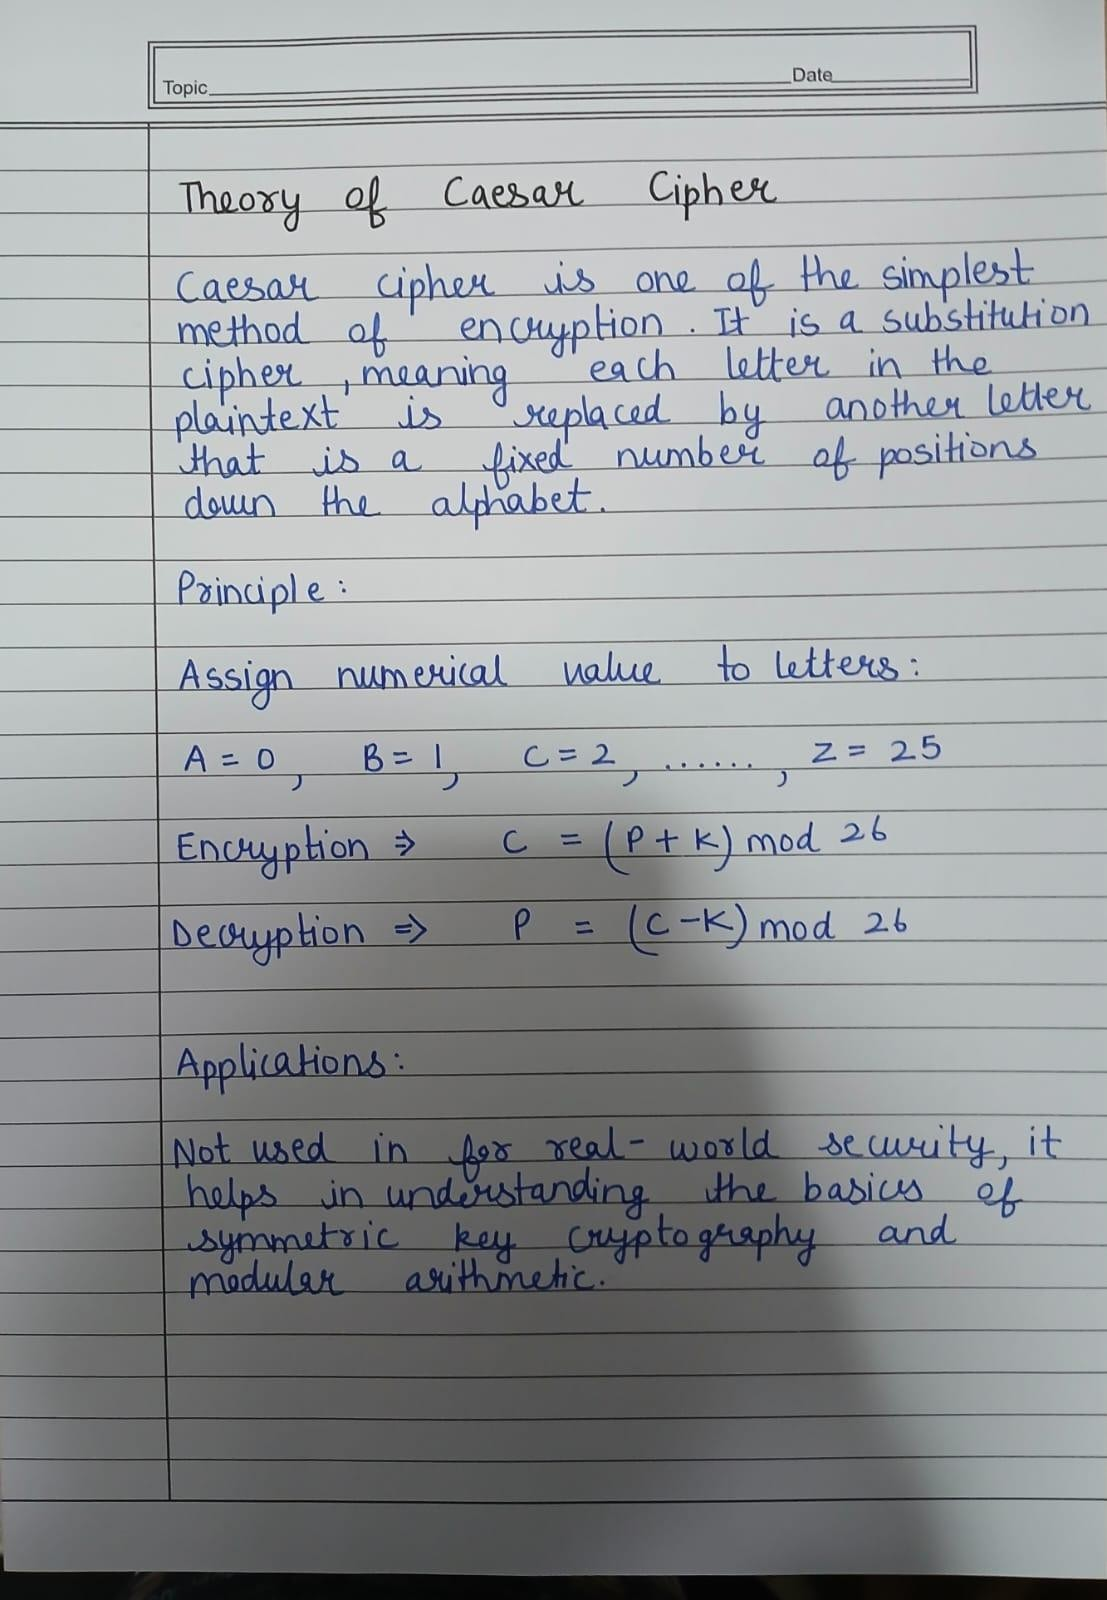 Topic Date
Theory of Caesar Cipher
Caesar cipher is one of the simplest
method of encryption. It is a substitution
cipher, meaning each letter in the
plaintext is replaced by another letter
that is a fixed number of positions
down the alphabet.
Principle:
Assign numerical value to letters:
A = 0, B = 1, C = 2, ......, Z = 25
Encryption ⇒ C = (P + K) mod 26
Decryption ⇒ P = (C - K) mod 26
Applications:
Not used in for real-world security, it
helps in understanding the basics of
symmetric key cryptography and
modular arithmetic.